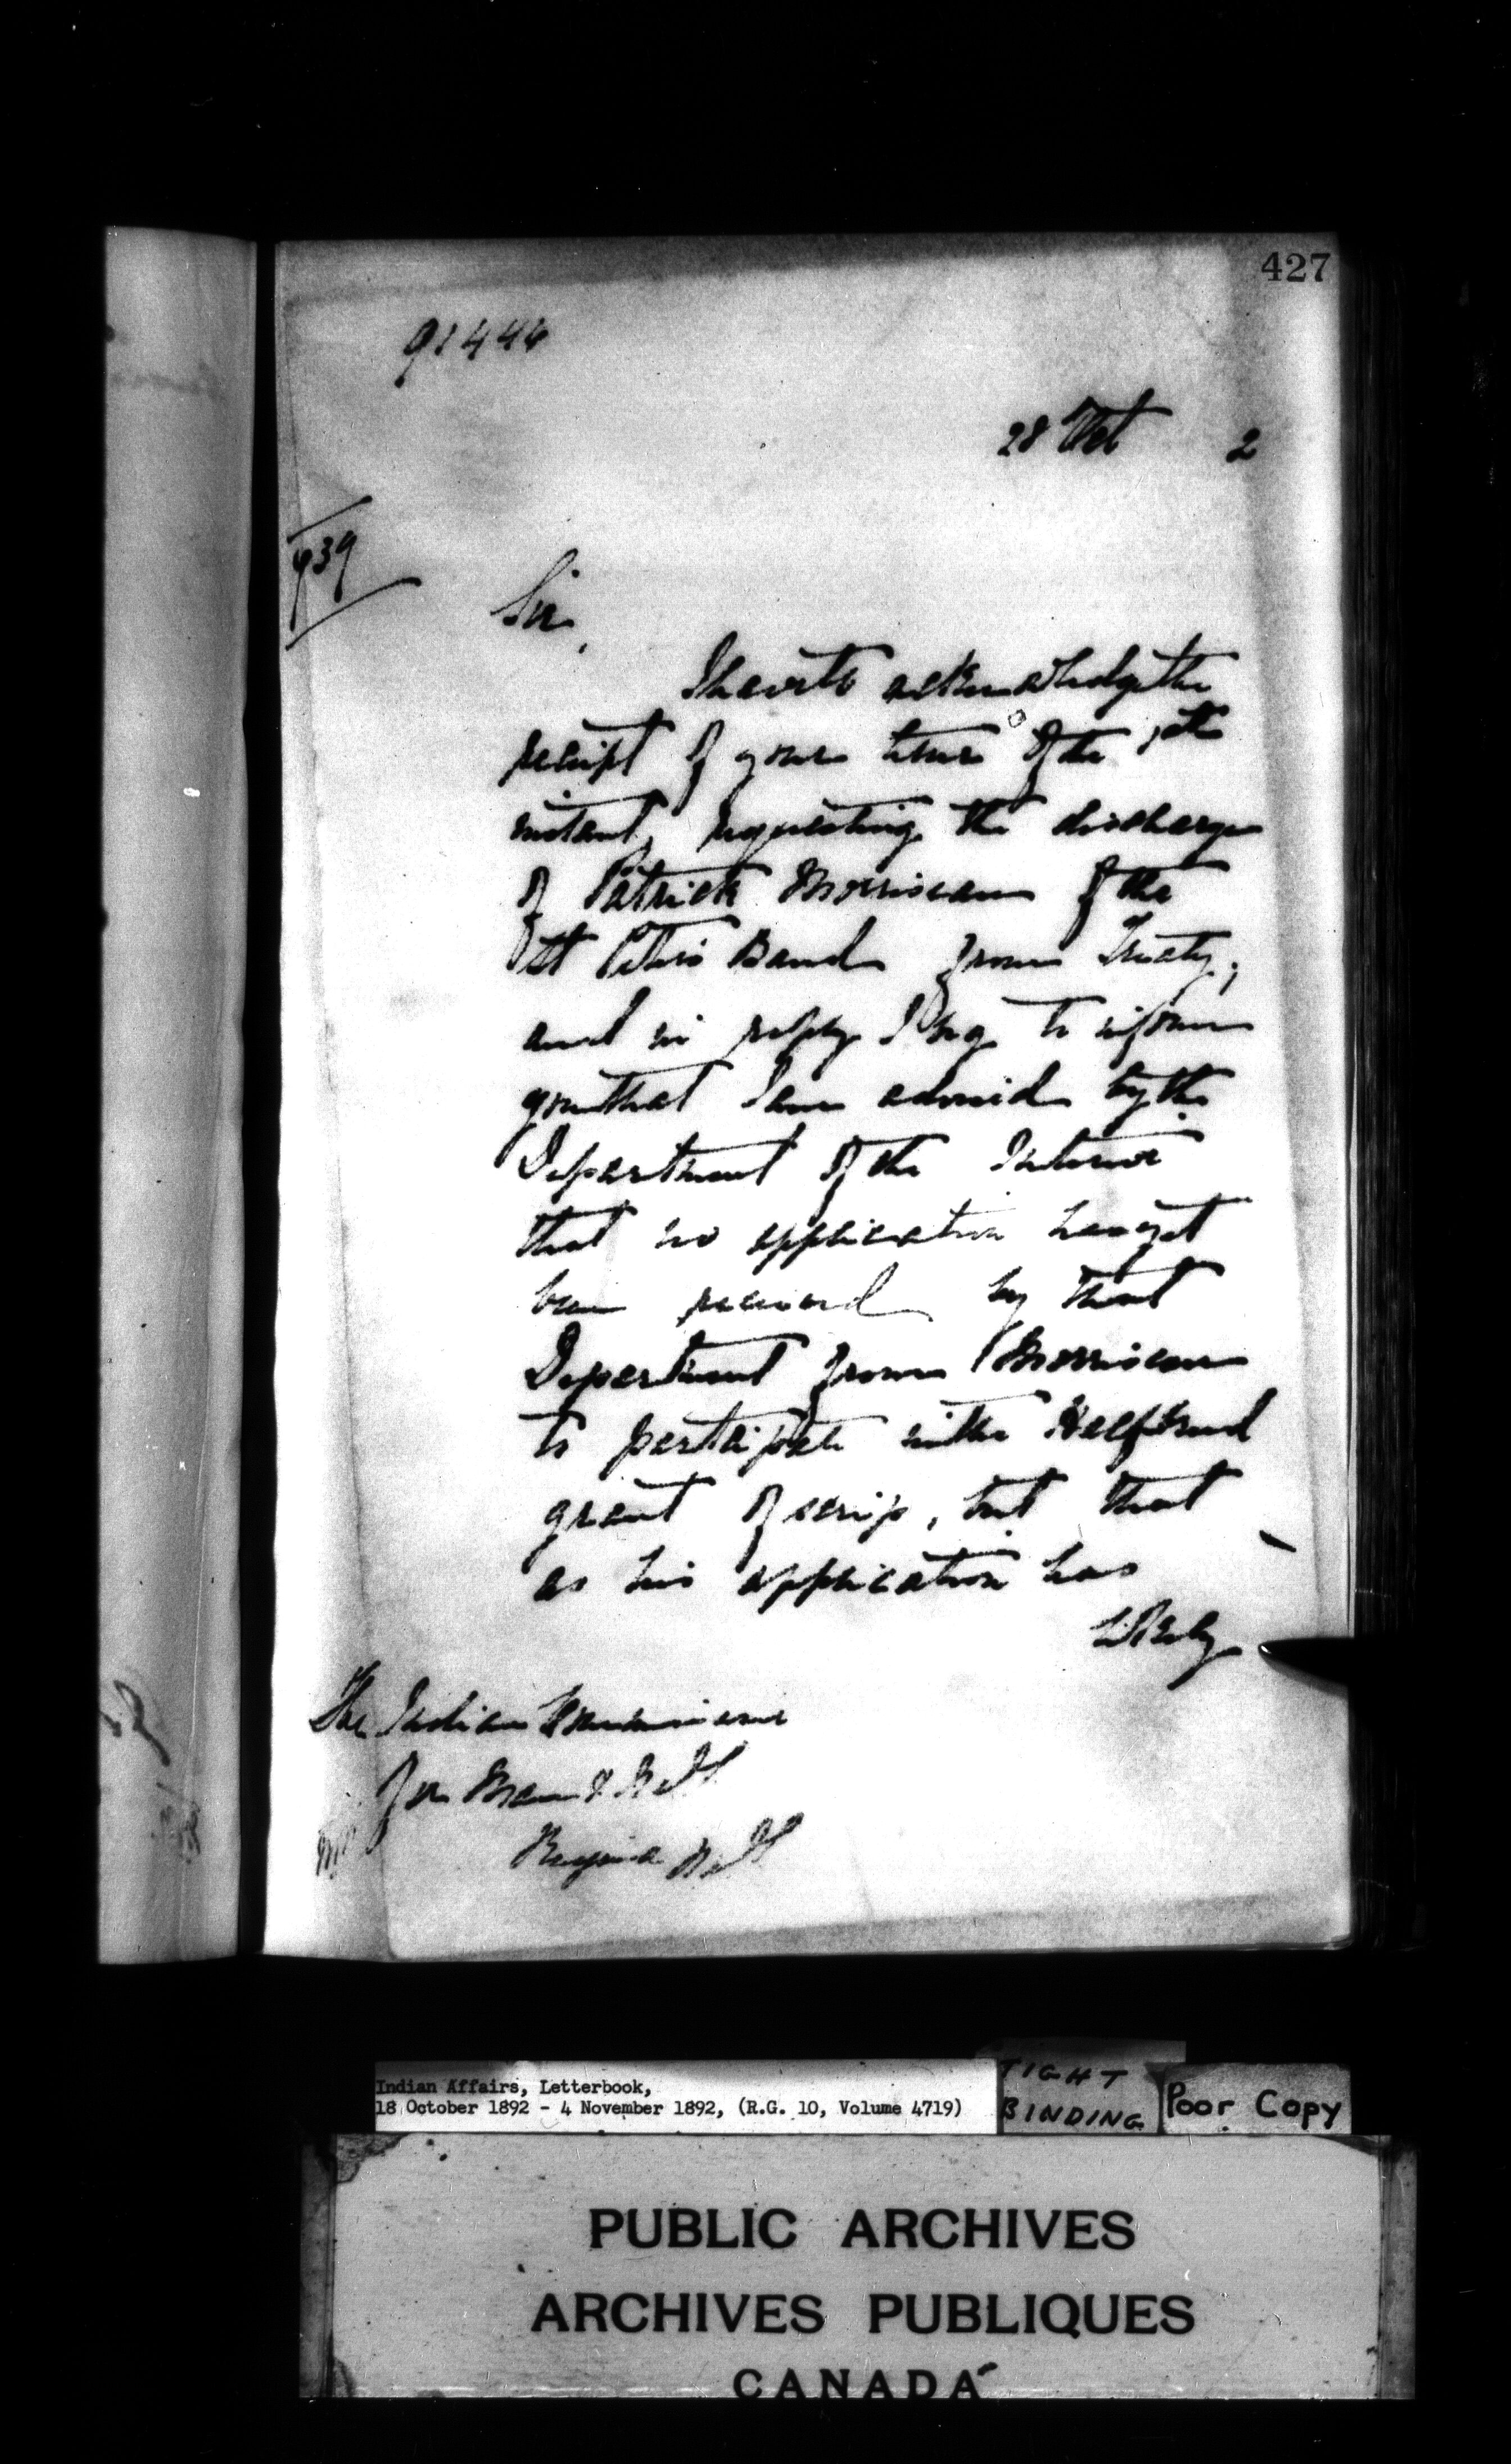 427
91446
28 Oct 2
939
Sir,
I have to acknowledge the
receipt of your letter of the
instant, requesting the discharge
of Patrick Morriseau of the
St Peter's Band from Treaty,
and in reply I beg to inform
you that I am advised by the
Department of the Interior
that no application has yet
been received by that
Department from Morriseau
to participate in the Halfbreed
grant of scrip, but that
as his application has
The Indian Commissioner
for Man & N W T
Regina N W T
Indian Affairs, Letterbook,
18 October 1892 - 4 November 1892, (R.G. 10, Volume 4719)
TIGHT
BINDING
Poor Copy
PUBLIC ARCHIVES
ARCHIVES PUBLIQUES
CANADA